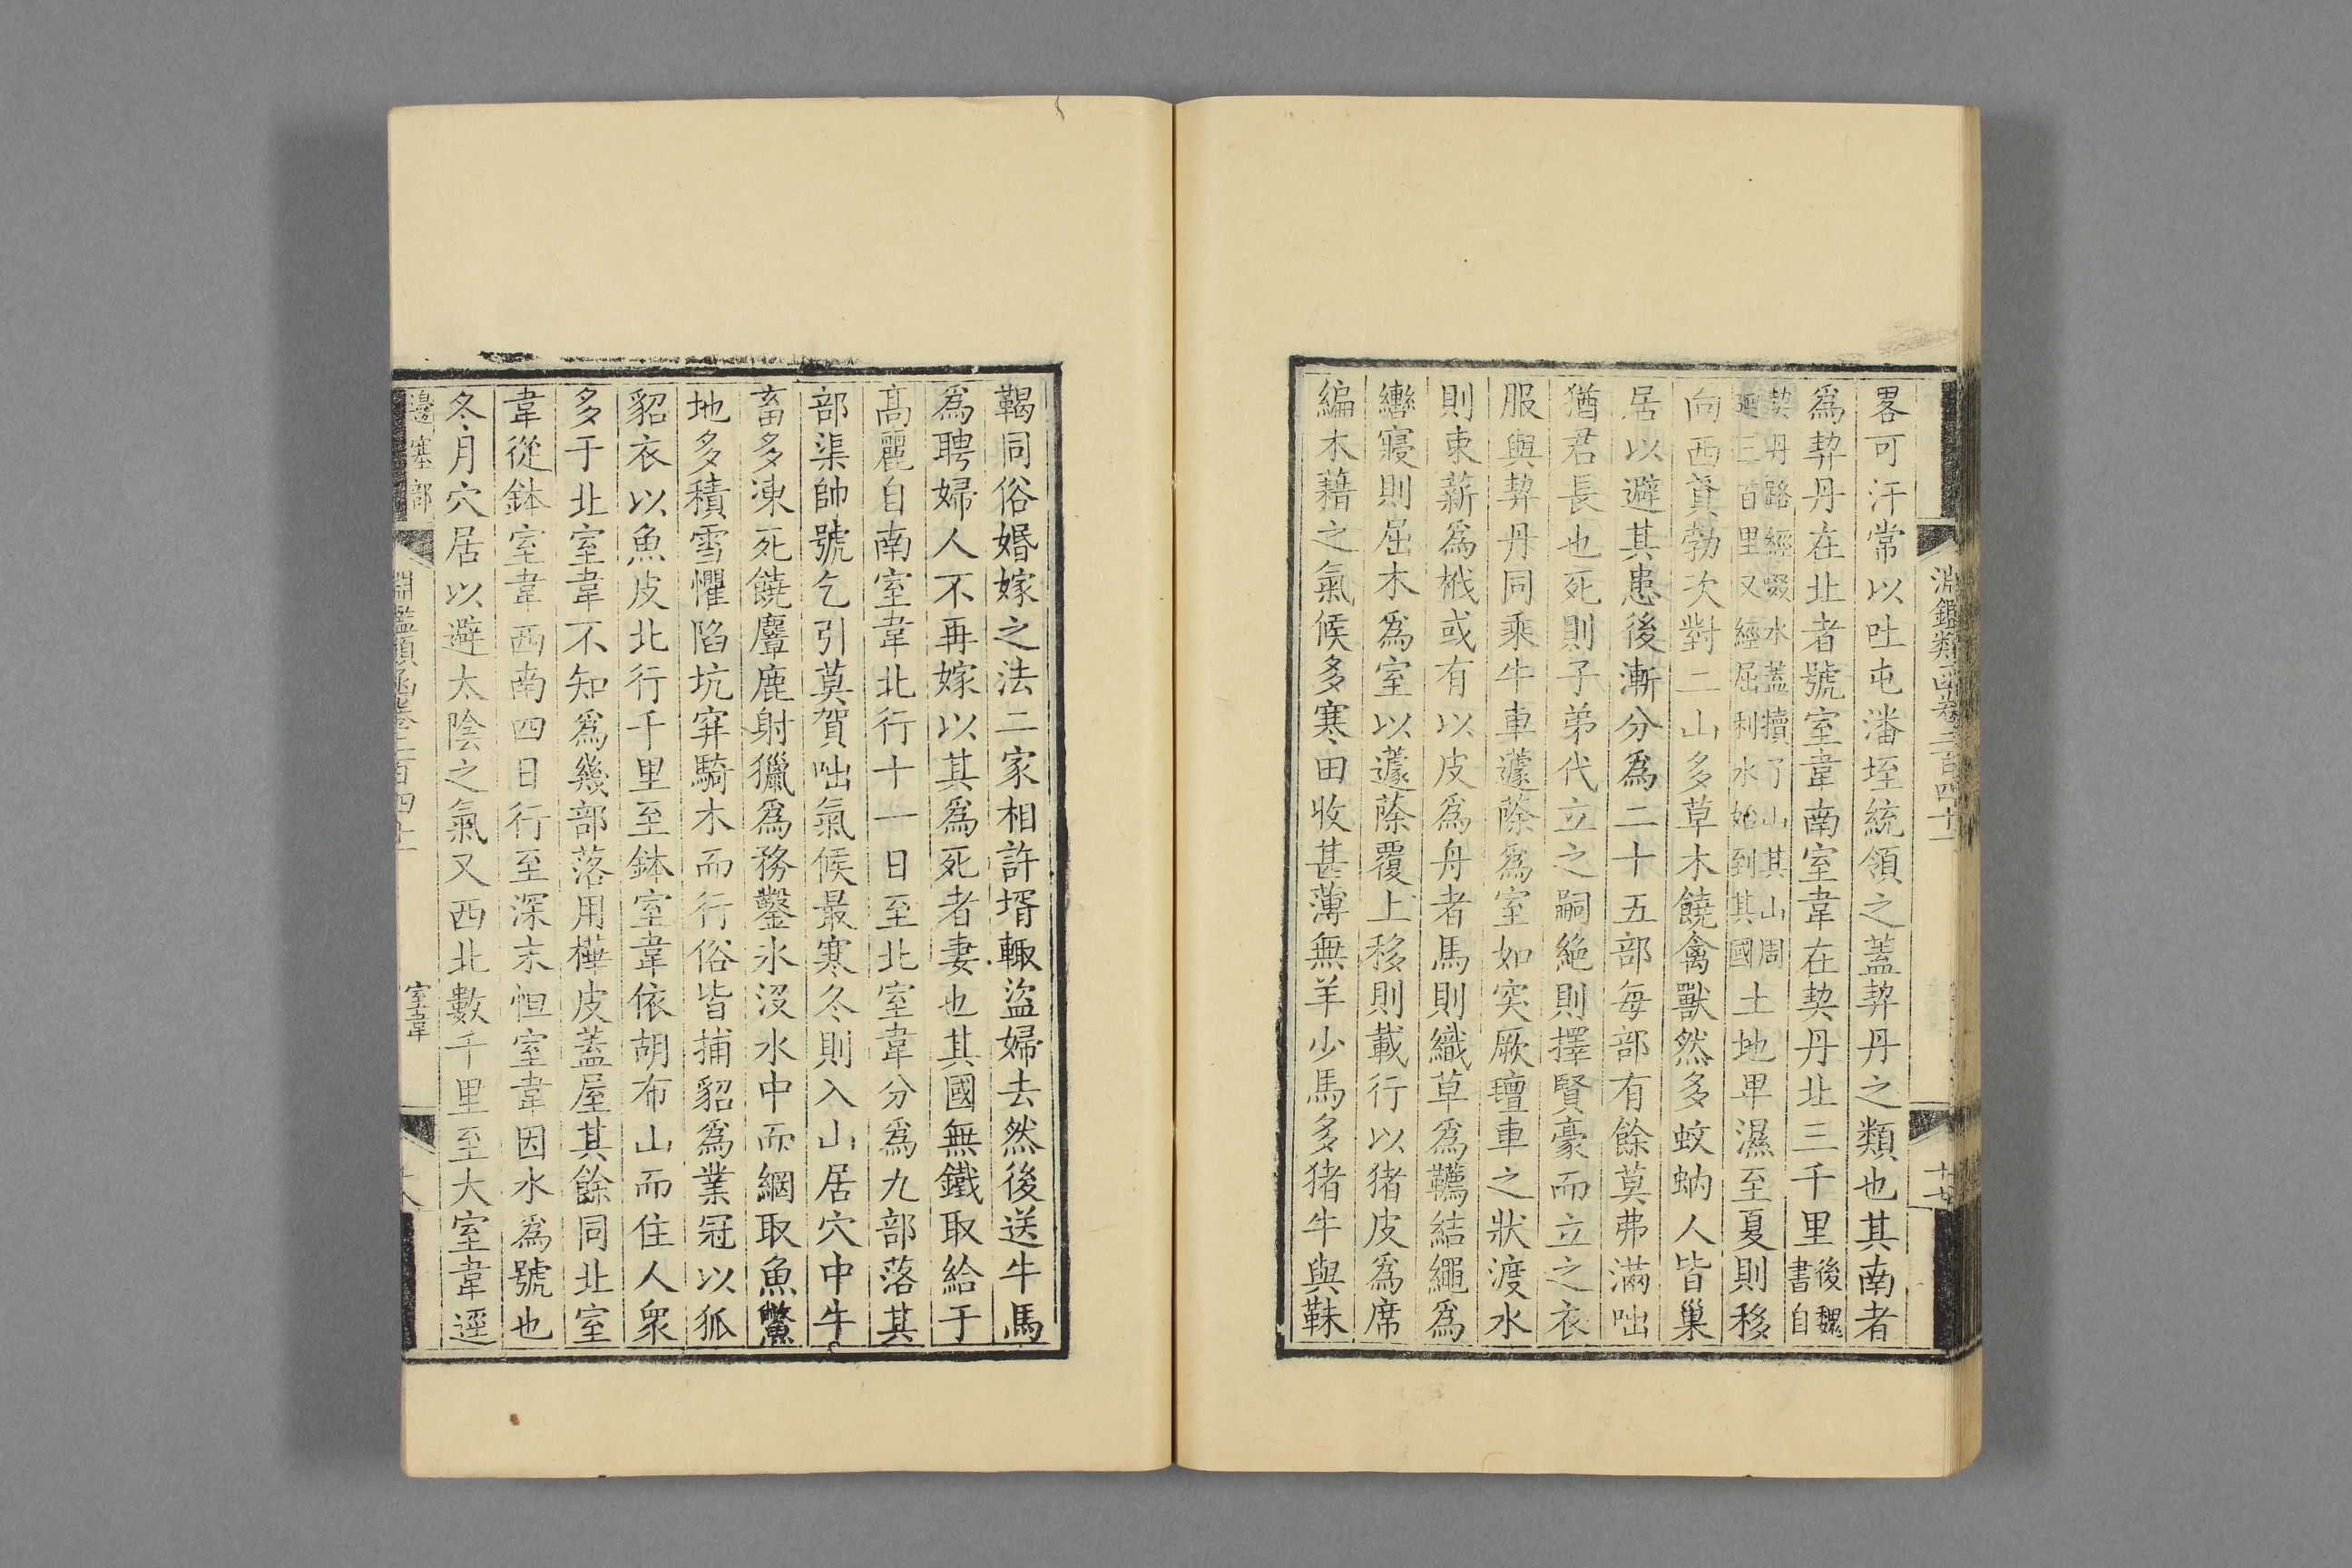 淵鑑類函卷二百四十一
十七
畧可汗常以吐屯潘垤統領之蓋契丹之類也其南者
爲契丹在北者號室韋南室韋在契丹北三千里後魏書自
契丹路經啜水蓋犢了山其山周迴三百里又經屈利水始到其國土地卑濕至夏則移
向西貣勃欠對二山多草木饒禽獸然多蚊蚋人皆巢
居以避其患後漸分爲二十五部每部有餘莫弗滿咄
猶君長也死則子弟代立之嗣絶則擇賢豪而立之衣
服與契丹同乘牛車蘧蒢爲室如突厥氊車之狀渡水
則束薪爲栰或有以皮爲舟者馬則織草爲韉結繩爲
轡寢則屈木爲室以蘧蒢覆上移則載行以猪皮爲席
編木藉之氣候多寒田收甚薄無羊少馬多猪牛與靺
鞨同俗婚嫁之法二家相許壻輒盜婦去然後送牛馬
爲聘婦人不再嫁以其爲死者妻也其國無鐵取給于
高麗自南室韋北行十一日至北室韋分爲九部落其
部渠帥號乞引莫賀咄氣候最寒冬則入山居穴中牛
畜多凍死饒麞鹿射獵爲務鑿氷没水中而網取魚鱉
地多積雪懼陷坑穽騎木而行俗皆捕貂爲業冠以狐
貂衣以魚皮北行千里至鉢室韋依胡布山而住人衆
多于北室韋不知爲幾部落用樺皮蓋屋其餘同北室
韋從鉢室韋西南四日行至深末怛室韋因水爲號也
冬月穴居以避太陰之氣又西北數千里至大室韋逕
邊塞部
淵鑑類函卷二百四十一
室韋
十八